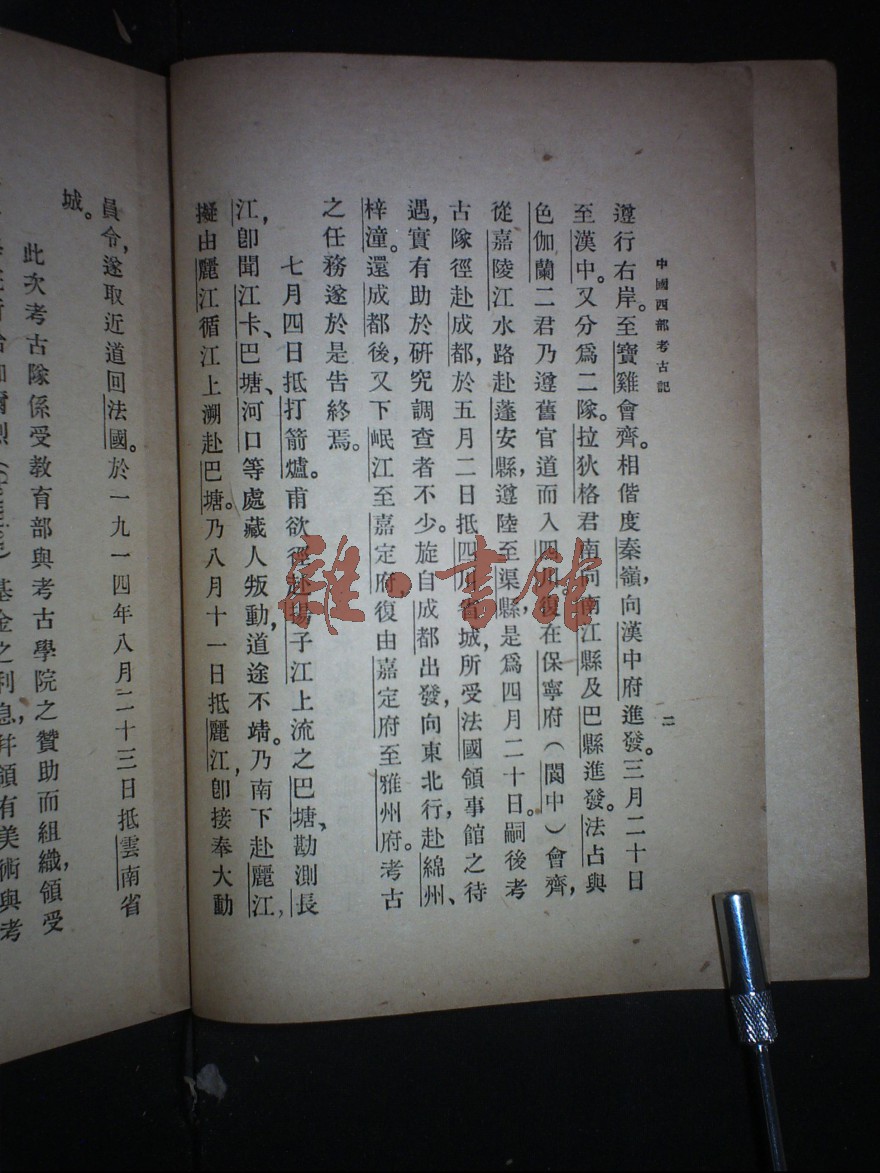 中國西部考古記
二
遵行右岸。至寶雞會齊。相偕度秦嶺，向漢中府進發。三月二十日
至漢中。又分爲二隊。拉狄格君南向南江縣及巴縣進發。法占與
色伽蘭二君乃遵舊官道而入四川。復在保寧府（閬中）會齊，
從嘉陵江水路赴蓬安縣，遵陸至渠縣，是爲四月二十日。嗣後考
古隊徑赴成都，於五月二日抵四川省城，所受法國領事館之待
遇，實有助於研究調查者不少。旋自成都出發，向東北行，赴綿州、
梓潼。還成都後，又下岷江至嘉定府，復由嘉定府至雅州府。考古
之任務遂於是告終焉。
七月四日抵打箭爐。甫欲徑赴揚子江上流之巴塘，勘測長
江，卽聞江卡、巴塘、河口等處藏人叛動，道途不靖。乃南下赴麗江，
擬由麗江循江上溯赴巴塘。乃八月十一日抵麗江，卽接奉大動
員令，遂取近道回法國。於一九一四年八月二十三日抵雲南省
城。
此次考古隊係受教育部與考古學院之贊助而組織，領受
基金之利息，幷領有美術與考
雜·書館